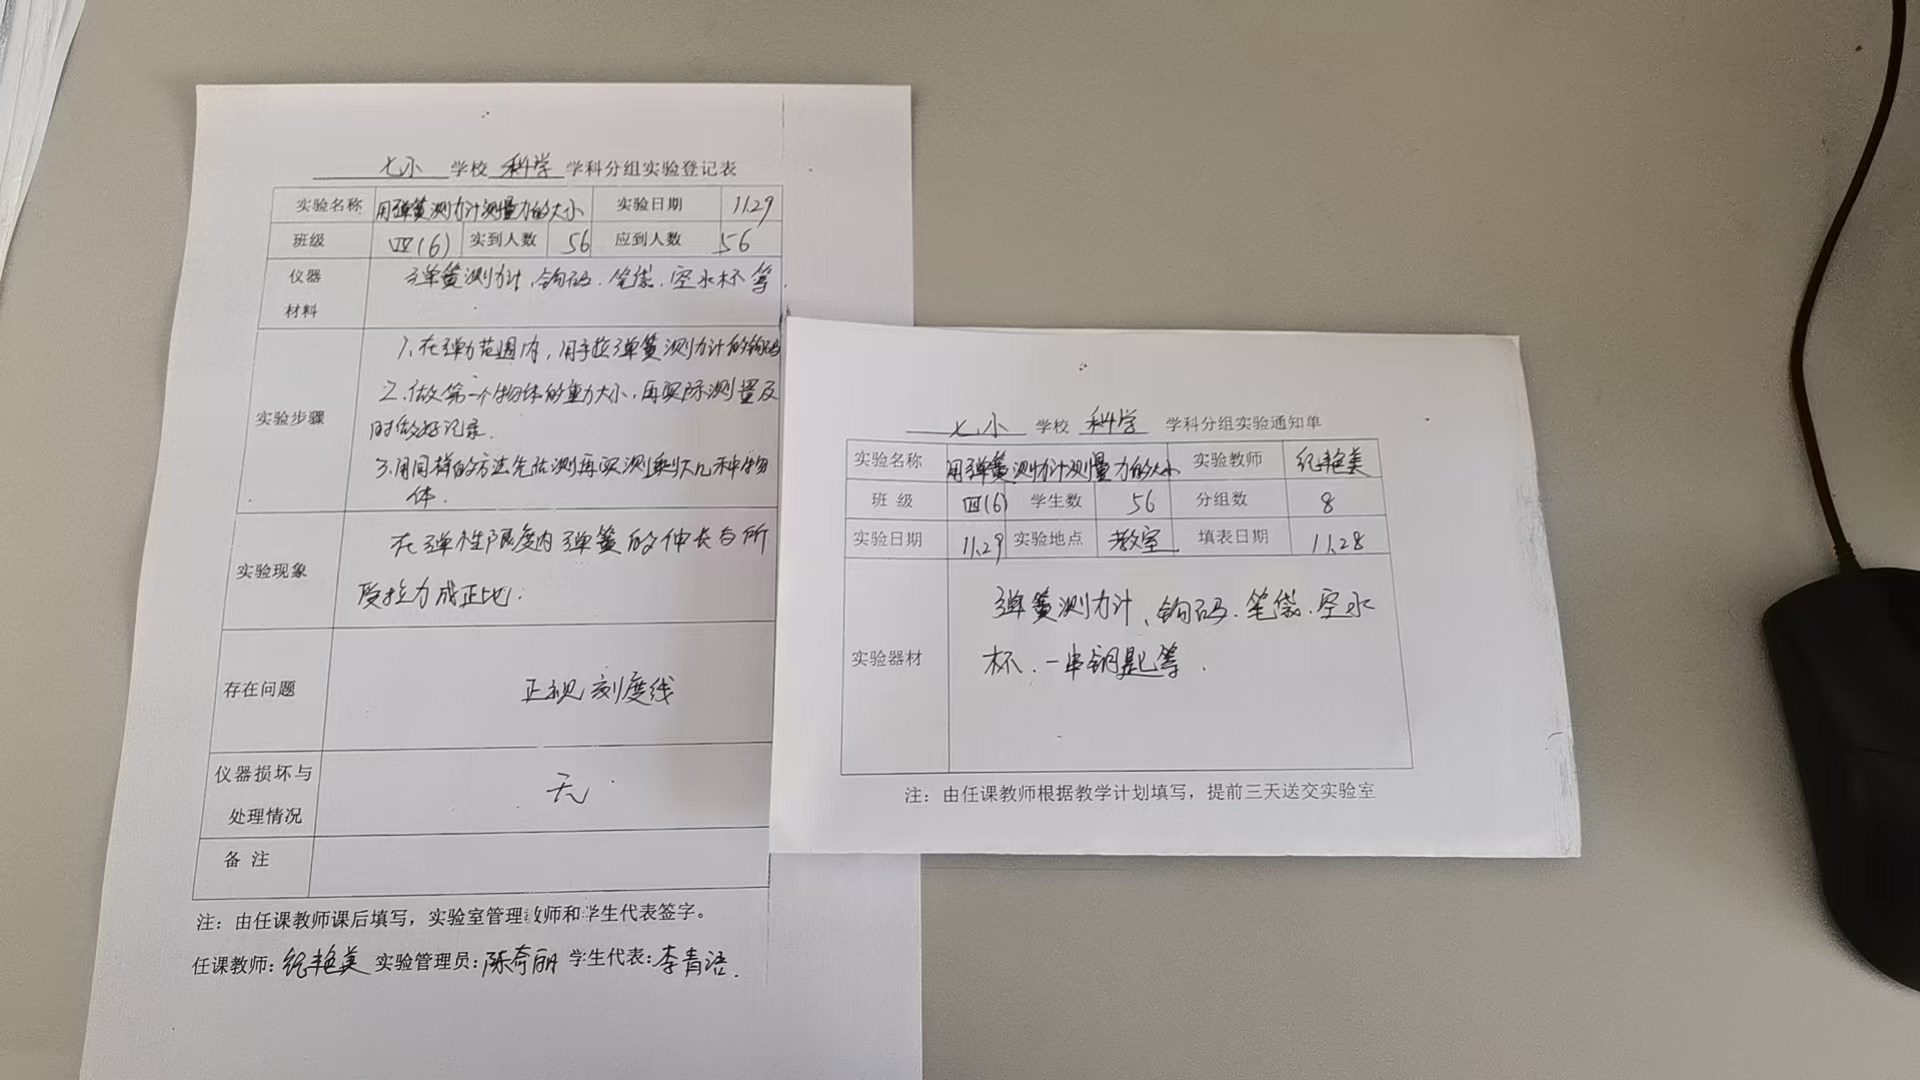 七小 学校 科学 学科分组实验登记表
实验名称 用弹簧测力计测量力的大小 实验日期 11.29
班级 四(6) 实到人数 56 应到人数 56
仪器材料 弹簧测力计、钩码.笔袋.空水杯等.
实验步骤
1、在弹力范围内,用手拉弹簧测力计的钩码
2.做第一个物体的重力大小,再实际测量及
时做好记录.
3.用同样的方法先估测再实测剩下几种物
体.
实验现象
在弹性限度内弹簧的伸长与所
受拉力成正比.
存在问题 正视刻度线
仪器损坏与处理情况 无.
备 注
注：由任课教师课后填写，实验室管理教师和学生代表签字。
任课教师: 纪艳美 实验管理员: 陈奇丽 学生代表: 李青语.
七小 学校 科学 学科分组实验通知单
实验名称 用弹簧测力计测量力的大小 实验教师 纪艳美
班 级 四(6) 学生数 56 分组数 8
实验日期 11.29 实验地点 教室 填表日期 11.28
实验器材
弹簧测力计、钩码.笔袋.空水
杯.一串钥匙等.
注：由任课教师根据教学计划填写，提前三天送交实验室